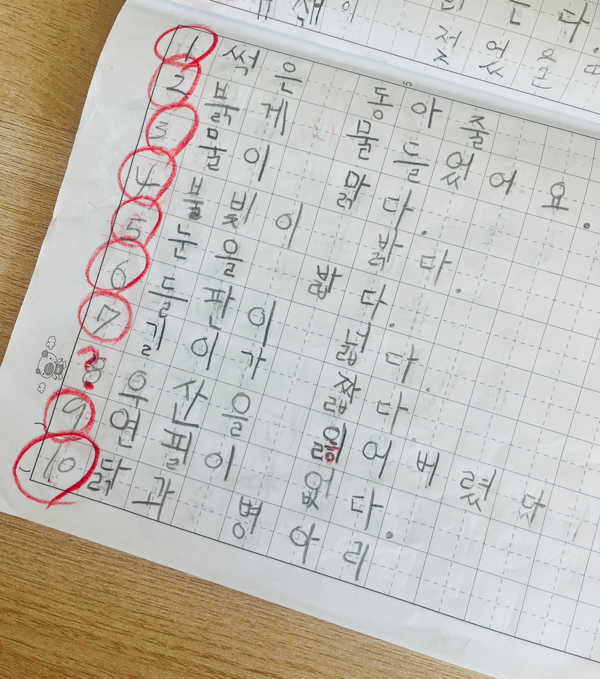 1 썩은 동아줄
2 붉게 물들었어요.
3 물이 맑다.
4 불빛이 밝다.
5 눈을 밟다.
6 들판이 넓다.
7 길이가 짧다.
8 우산을 잃어버렸닸
9 연필이 없다.
10 닭과 병아리